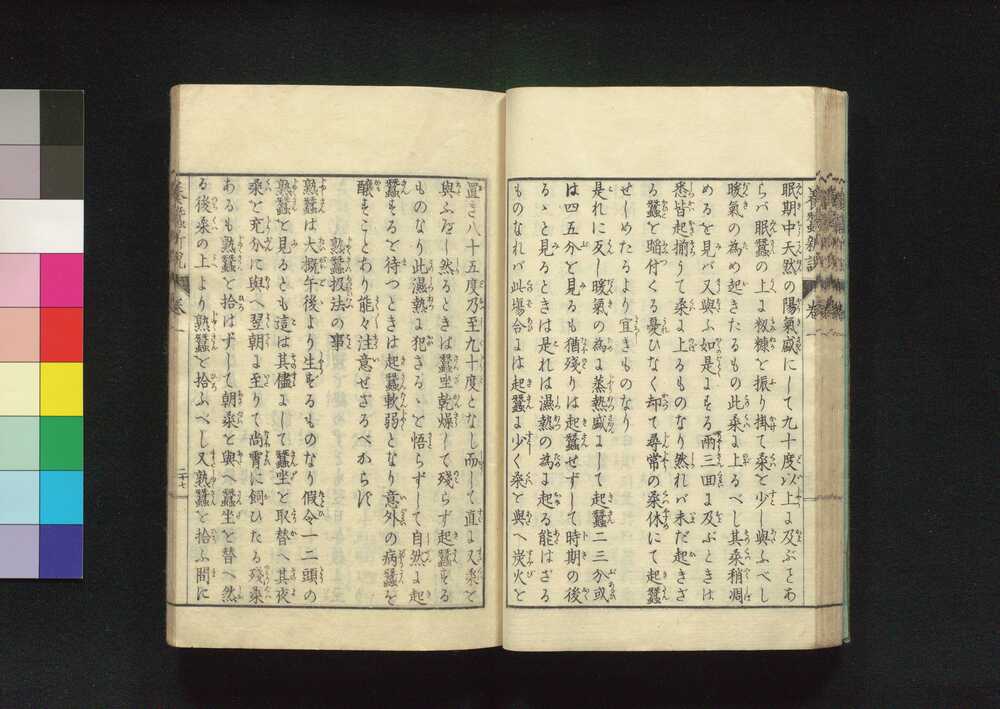 眠期中天然の陽氣盛にして九十度以上に及ぶとあ
らバ眠蠶の上に籾糠を振り掛て桑を少し與ふべし
暖氣の為め起きたるもの此桑に上るべし其桑稍凋
めるを見バ又與ふ如是にする兩三回に及ぶときは
悉皆起揃うて桑に上るものなり然れバ未だ起きざ
る蠶を蹈付くる憂ひなく却て尋常の桑休にて起蠶
せしめたるより宜きものなり
是れに反し暖氣の為に蒸熱盛にして起蠶二三分或
は四五分と見るも猶殘りは起蠶せずして時期の後
るゝと見るときは是れは濕熱の為に起る能はざる
ものなれバ此塲合には起蠶に少く桑を與へ炭火を
置き八十五度乃至九十度となし而して直に又桑を
與ふべし然るときは蠶坐乾燥して殘らず起蠶する
ものなり此濕熱に犯さるゝと悟らずして自然に起
蠶するを待つときは起蠶軟弱となり意外の病蠶を
釀すことあり能々注意せざるべからず
熟蠶扱法の事
熟蠶は大概午後より生ずるものなり假令一二頭の
熟蠶を見るとも這は其儘にして蠶坐を取替へ其夜
桑を充分に與へ翌朝に至りて尚霄に飼ひたる殘桑
あるも熟蠶を拾はずして朝桑を與へ蠶坐を替へ然
る後桑の上より熟蠶を拾ふべし又熟蠶を拾ふ間に
二十七